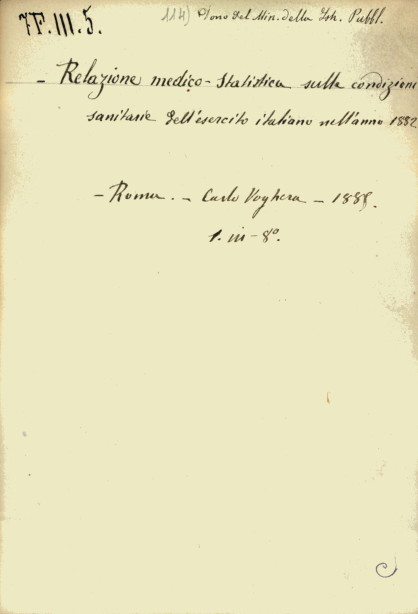 7F.III.5.
114) Dono del Min. della Ist. Pubbl.
- Relazione medico-statistica sulle condizioni
sanitarie dell'esercito italiano nell'anno 1882
- Roma. - Carlo Voghera - 1885.
1. in-8º.